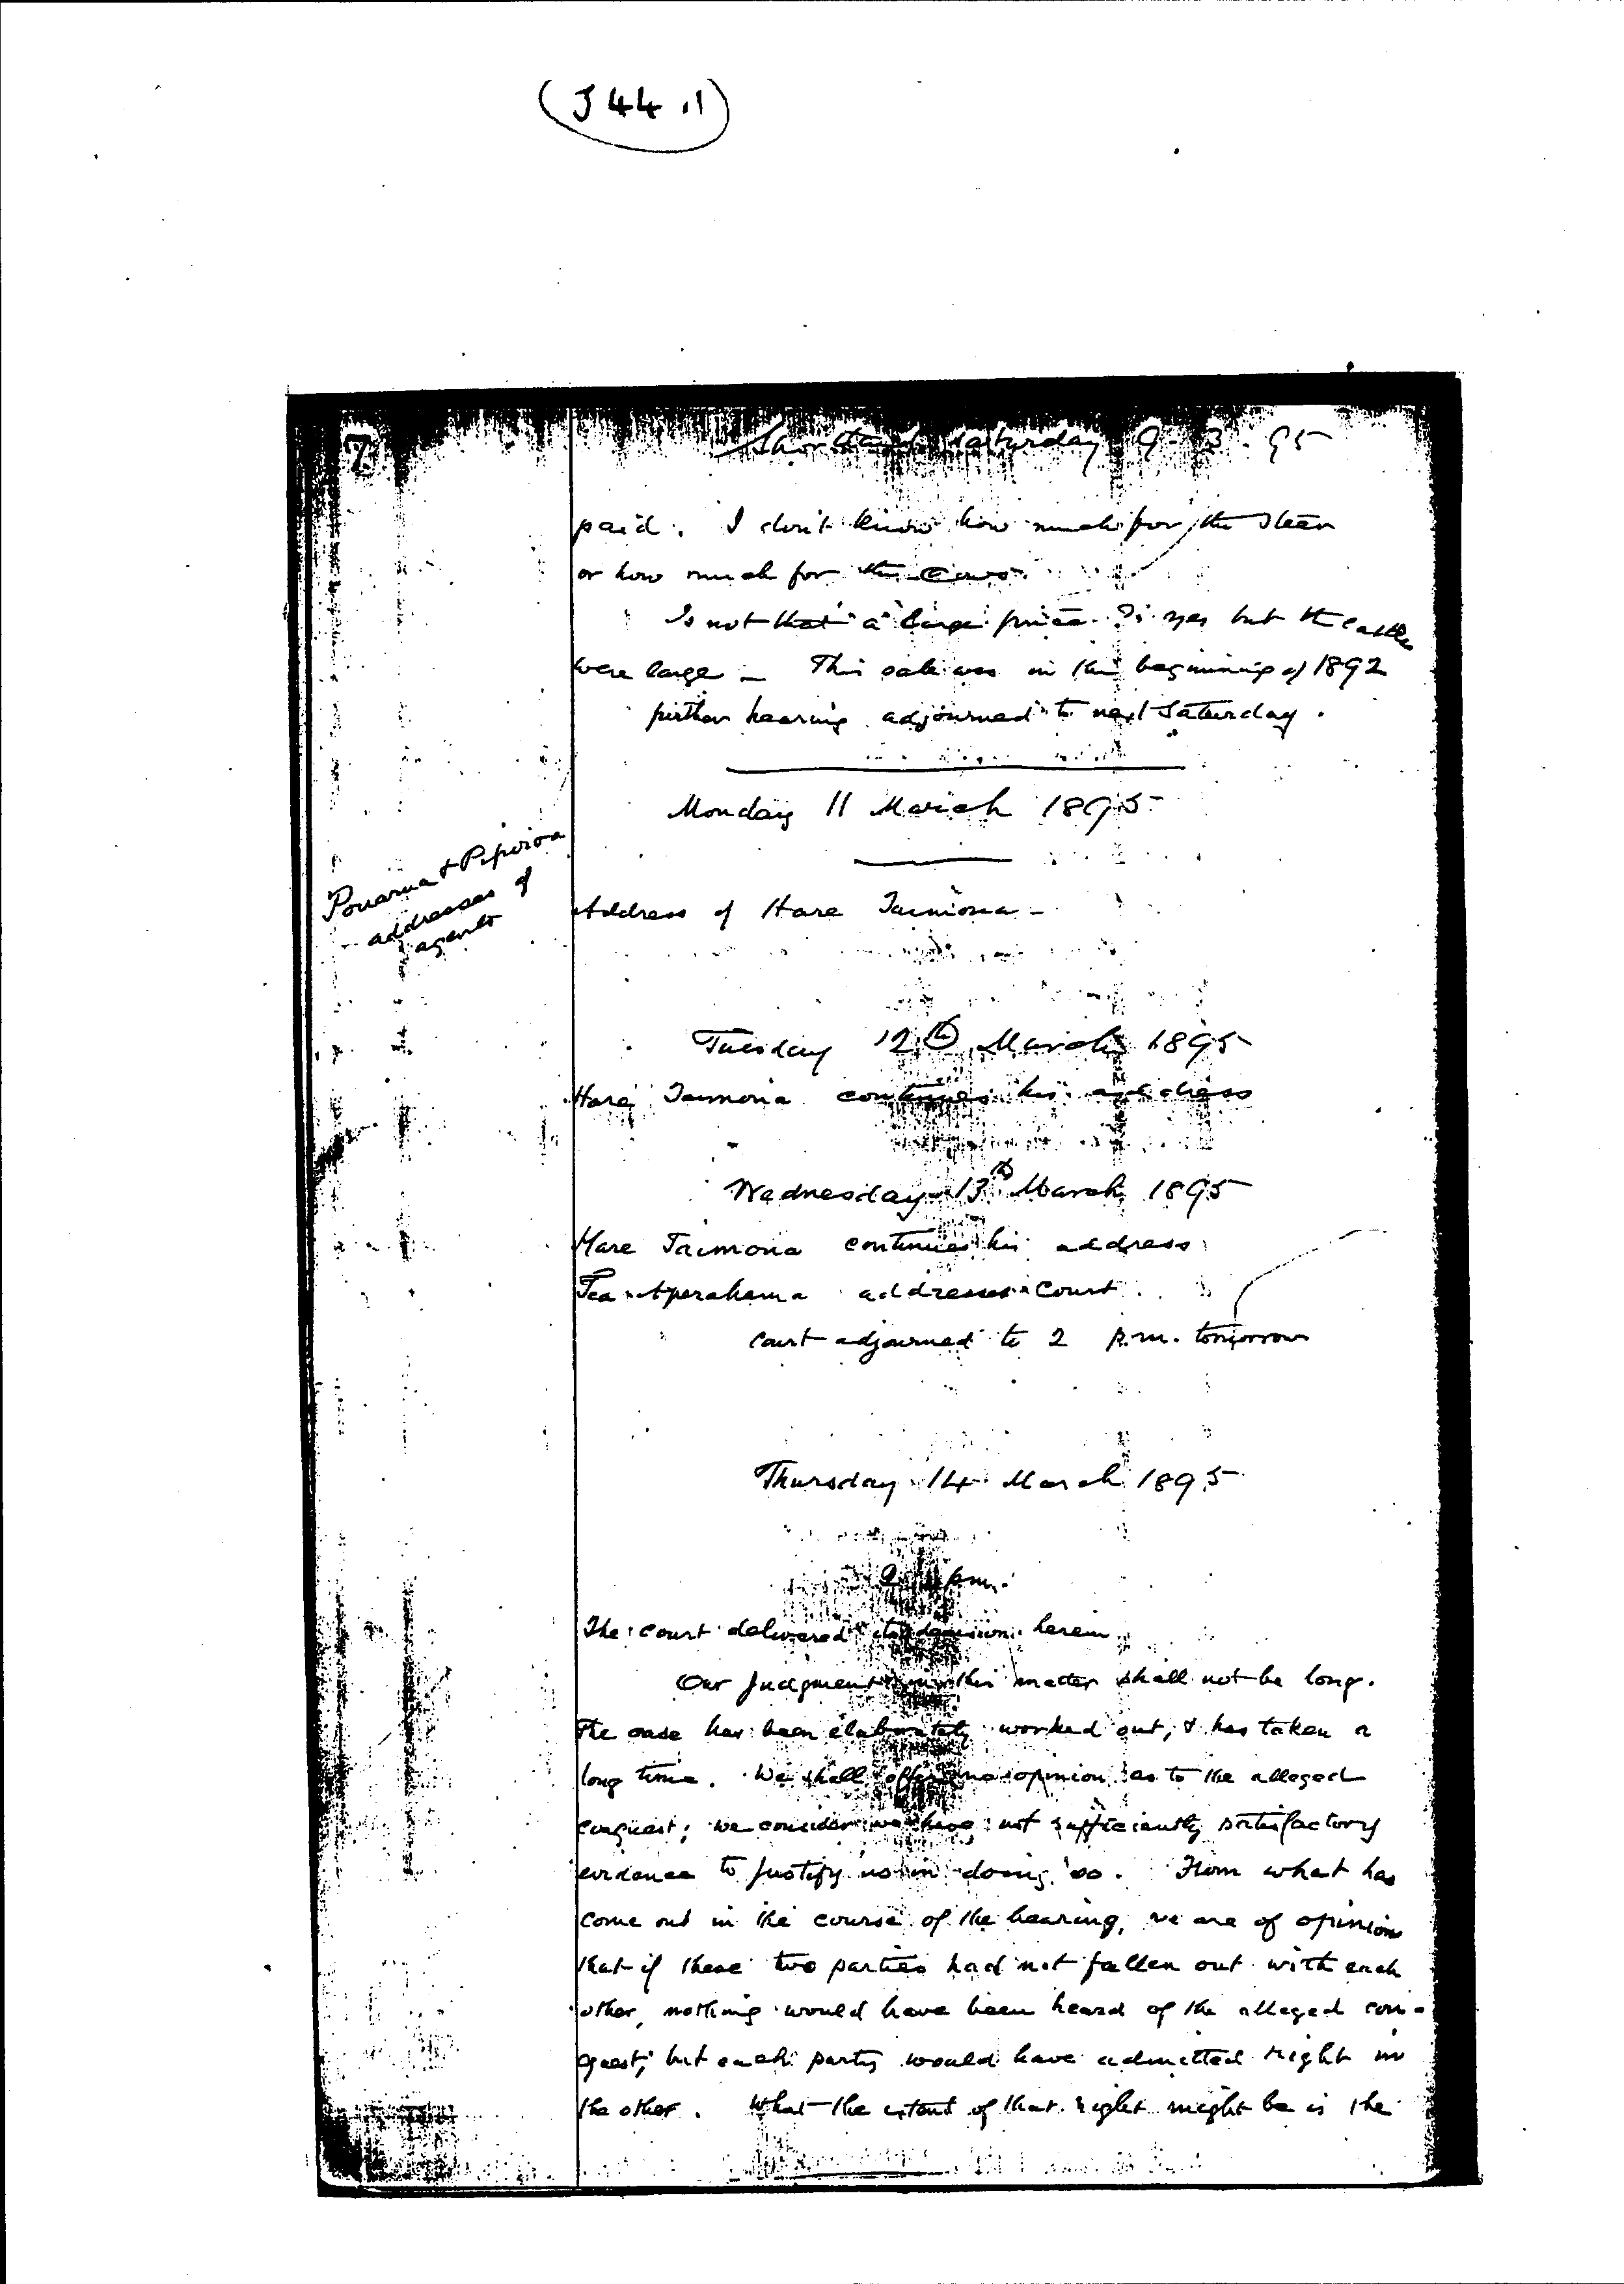 (J 44.11)
7
Shortland Saturday 9-3-95
paid. I don't know how much for the Steer
or how much for the Cows.
Is not that a large price? yes but the cattle
were large — This sale was in the beginning of 1892
further hearing adjourned to next Saturday.
Monday 11 March 1895
Pouarua & Pipiroa
addresses of
agents
Address of Hare Taimona —
Tuesday 12th March 1895
Hare Taimona continues his address
Wednesday 13th March 1895
Hare Taimona continues his address
Tea Aperahama addresses Court.
Court adjourned to 2 p.m. tomorrow
Thursday 14 March 1895
2 pm.
The Court delivered its decision herein.
Our Judgment in this matter shall not be long.
The case has been elaborately worked out, & has taken a
long time. We shall offer no opinion as to the alleged
conquest; we consider we have not sufficiently satisfactory
evidence to justify us in doing so. From what has
come out in the course of the hearing, we are of opinion
that if these two parties had not fallen out with each
other, nothing would have been heard of the alleged con-
quest; but each party would have admitted right in
the other. What the extent of that right might be is the